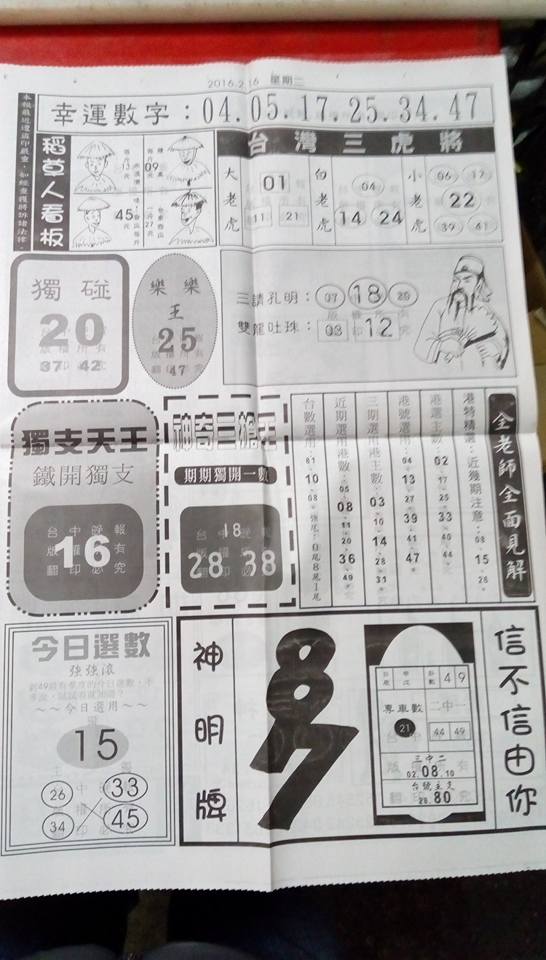 2016.2.16 星期二
幸運數字：04.05.17.25.34.47
稻草人看板
09
45
台灣三虎將
大老虎
01
11 21
白老虎
04
14 24
小老虎
06 12
22
39 41
獨碰
20
37 42
樂樂
王
25
47
三請孔明：07 18 29
雙龍吐珠：03 12
獨支天王
鐵開獨支
台中晚報
版權所有
翻印必究
16
神奇三槍王
期期獨開一數
18
28 38
全老師全面見解
港特精選：近幾期注意：08 15 26
港選主數：02 17 25 33 40 44
港號選用：04 13 27 39 41 47
三期選用港主數：03 10 14 28 31
近期選用港數：05 08 11 20 36 49
台數選用：81 10 08 強尾：0尾8尾1尾
今日選數
強強滾
～～今日選用～～
15
26 33
34 45
神明牌
信不信由你
49
專車數
21
二中一
44 49
三中二
02.08.10
台號主支
28.80